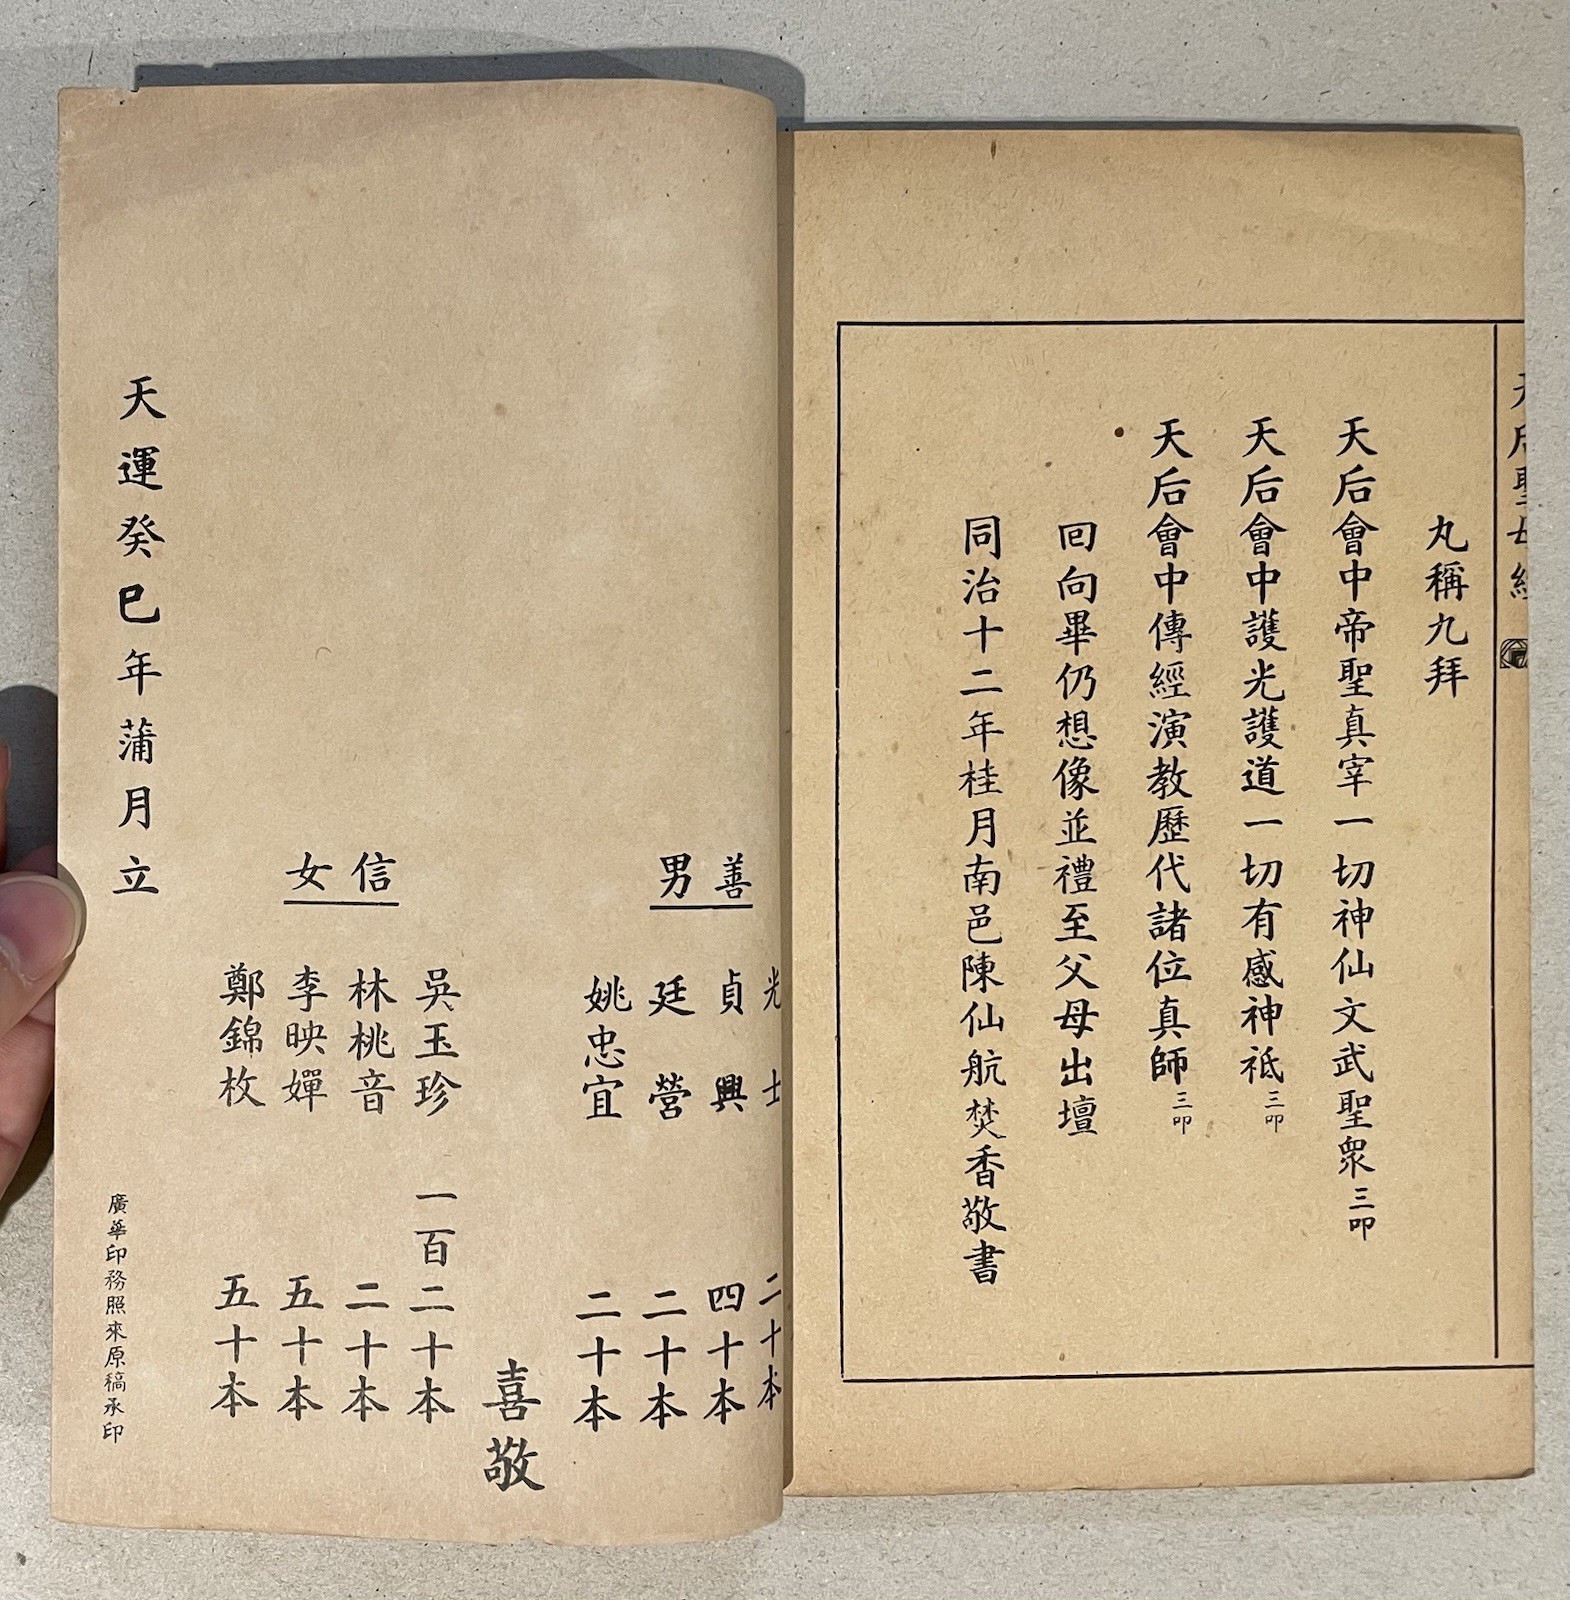 天后聖母經
丸稱九拜
天后會中帝聖真宰一切神仙文武聖衆三叩
天后會中護光護道一切有感神祗三叩
天后會中傳經演教歷代諸位真師三叩
回向畢仍想像並禮至父母出壇
同治十二年桂月南邑陳仙航焚香敬書
善男
光士 二十本
貞興 四十本
廷營 二十本
姚忠宜 二十本
喜敬
信女
吳玉珍 一百二十本
林桃音 二十本
李映嬋 五十本
鄭錦枚 五十本
天運癸巳年蒲月立
廣華印務照來原稿承印